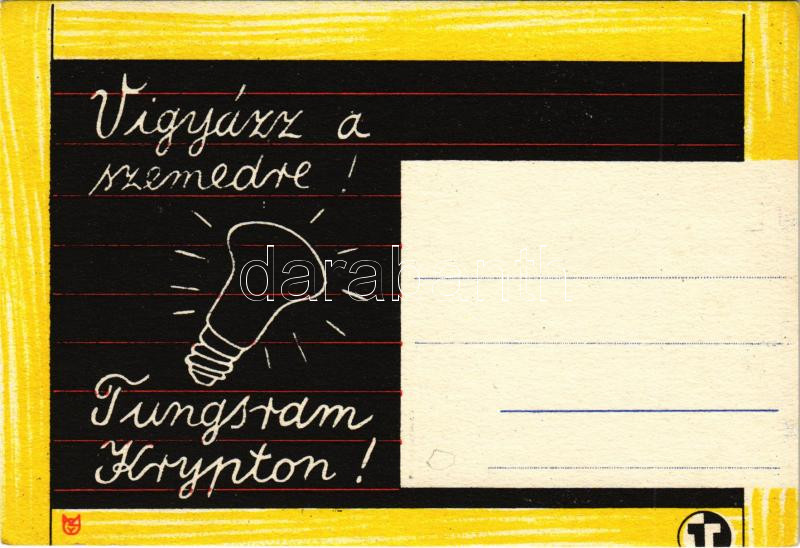 Vigyázz a
szemedre !
Tungsram
Krypton !